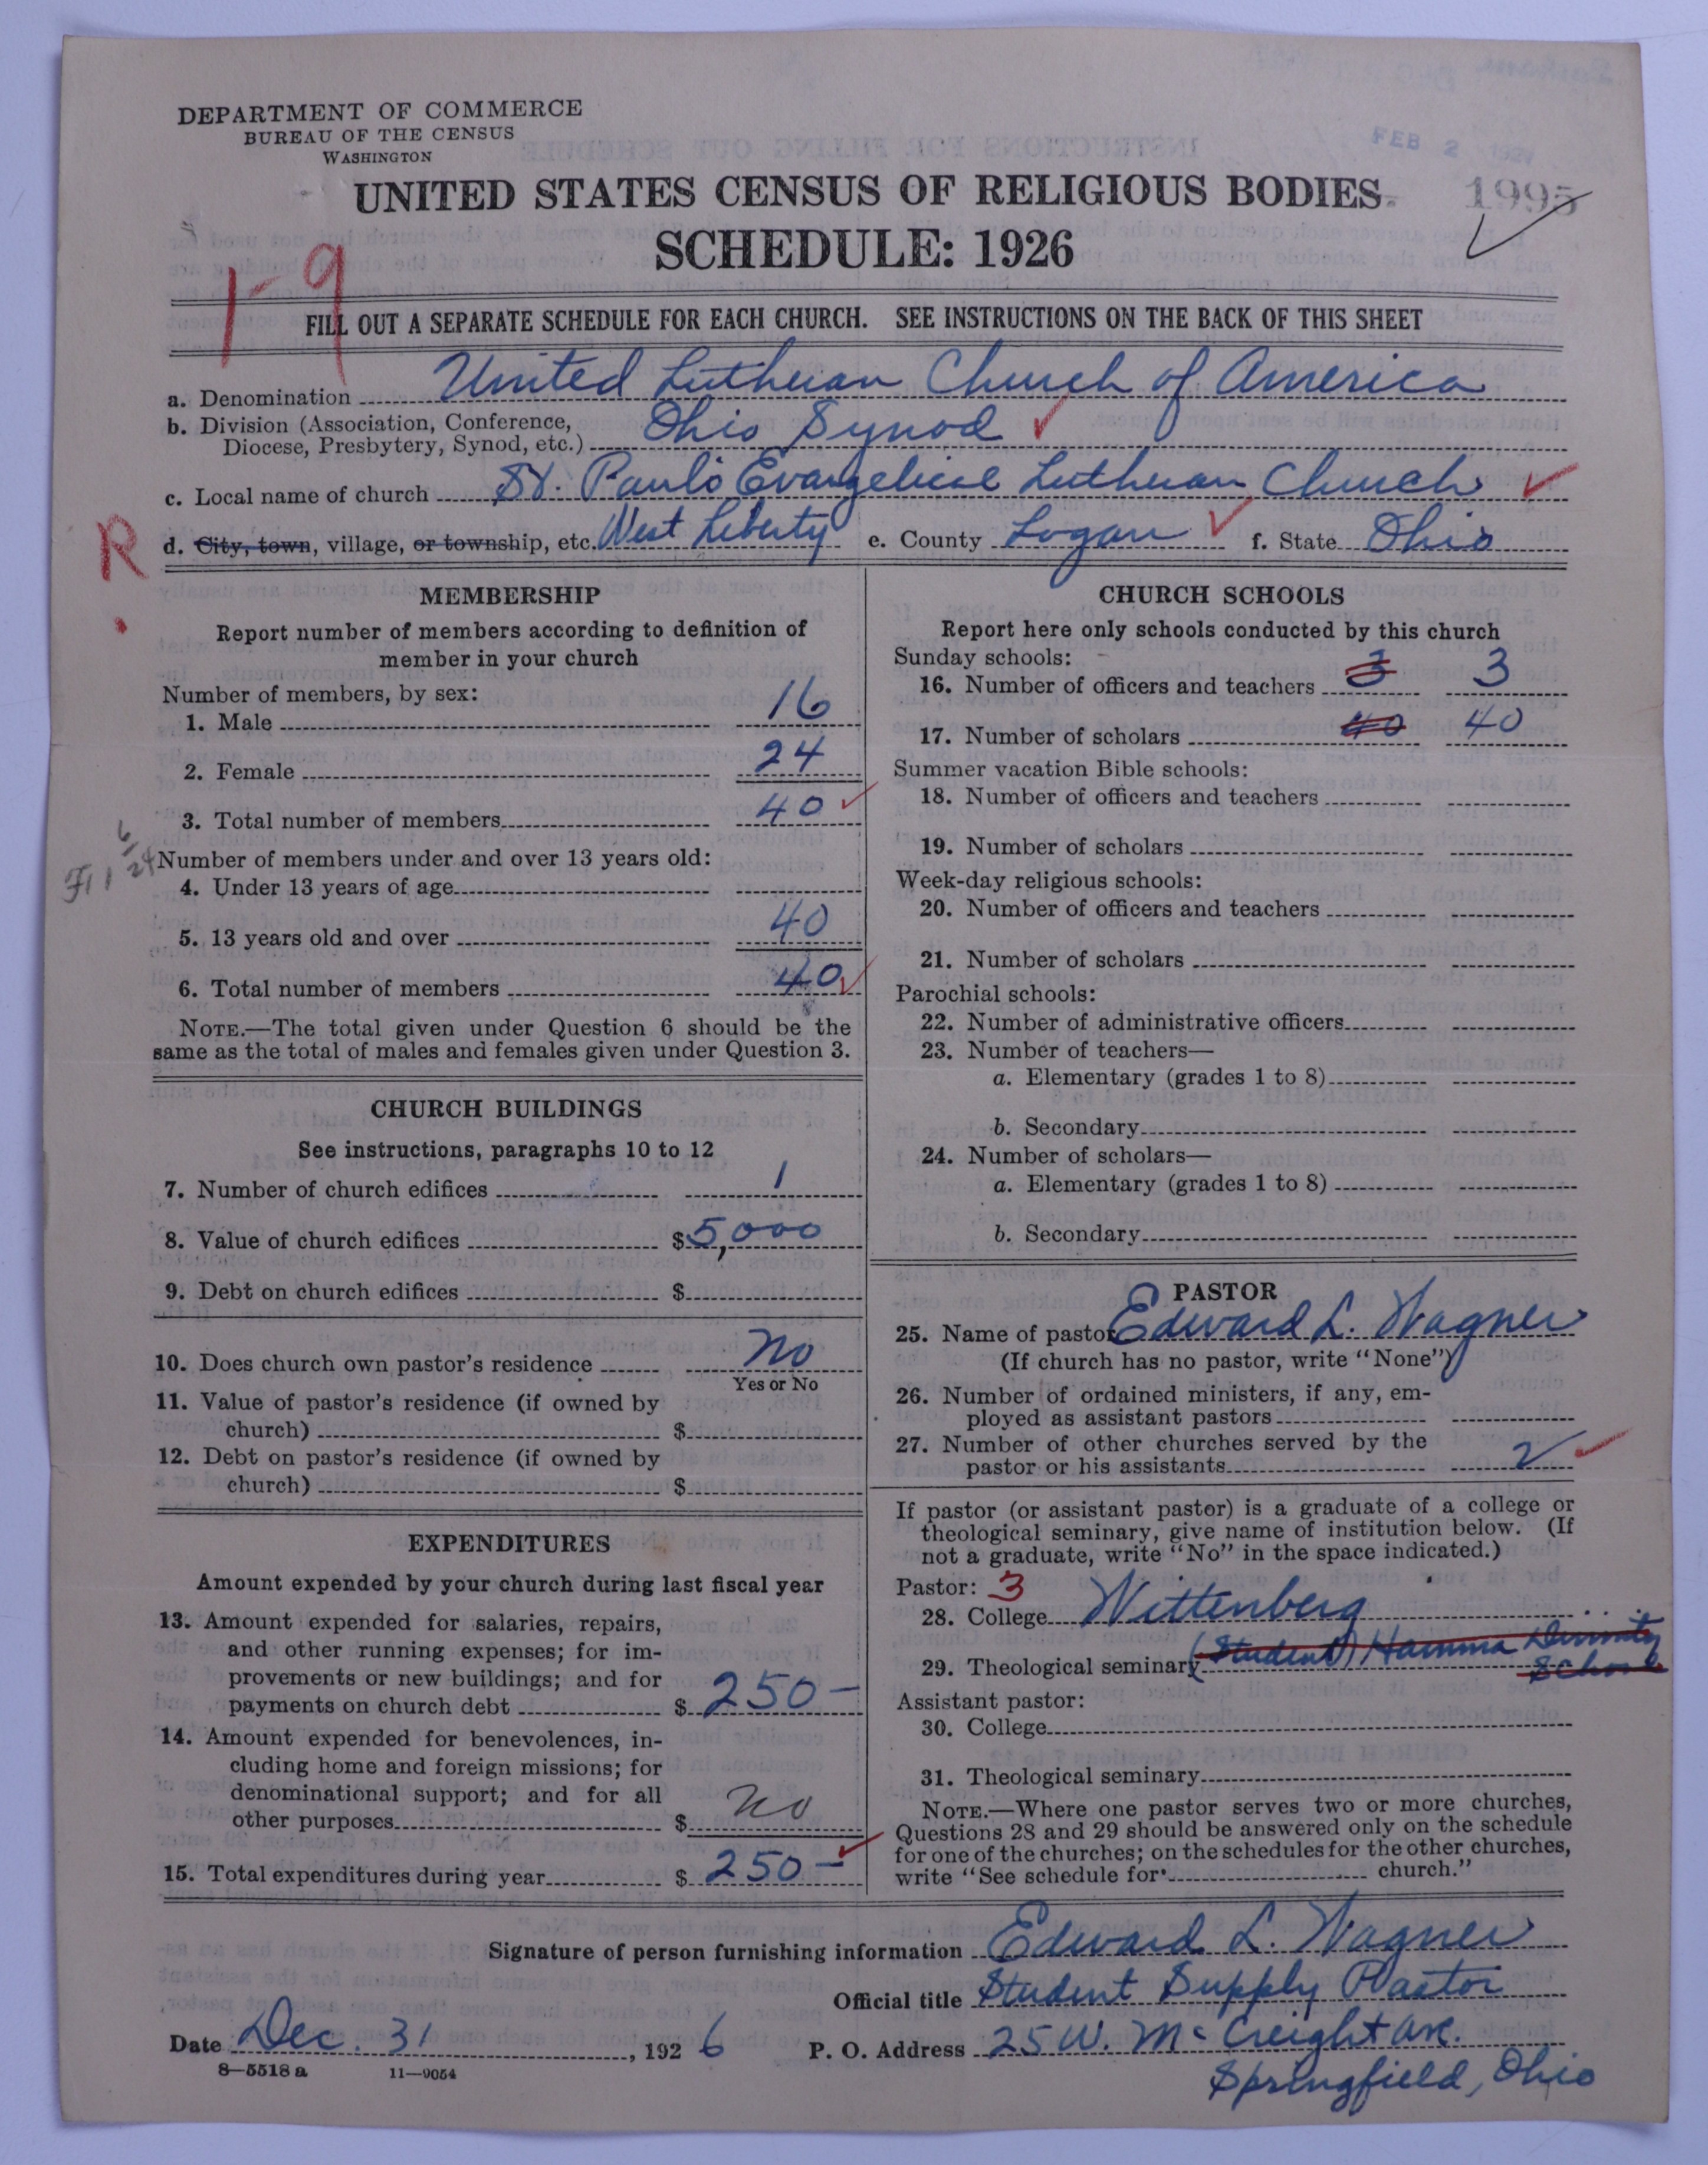 DEPARTMENT OF COMMERCE
BUREAU OF THE CENSUS
WASHINGTON
FEB 2 1927
UNITED STATES CENSUS OF RELIGIOUS BODIES
1995
SCHEDULE: 1926
1-9
FILL OUT A SEPARATE SCHEDULE FOR EACH CHURCH. SEE INSTRUCTIONS ON THE BACK OF THIS SHEET
a. Denomination United Lutheran Church of America
b. Division (Association, Conference,
Diocese, Presbytery, Synod, etc.) Ohio Synod
c. Local name of church St. Paul's Evangelical Lutheran Church
R.
d. City, town, village, or township, etc. West Liberty e. County Logan f. State Ohio
MEMBERSHIP
Report number of members according to definition of
member in your church
Number of members, by sex:
1. Male 16
2. Female 24
3. Total number of members 40
Number of members under and over 13 years old:
4. Under 13 years of age
5. 13 years old and over 40
6. Total number of members 40
NOTE.—The total given under Question 6 should be the
same as the total of males and females given under Question 3.
CHURCH BUILDINGS
See instructions, paragraphs 10 to 12
7. Number of church edifices 1
8. Value of church edifices $5,000
9. Debt on church edifices $
10. Does church own pastor's residence No
Yes or No
11. Value of pastor's residence (if owned by
church) $
12. Debt on pastor's residence (if owned by
church) $
EXPENDITURES
Amount expended by your church during last fiscal year
13. Amount expended for salaries, repairs,
and other running expenses; for im-
provements or new buildings; and for
payments on church debt $ 250—
14. Amount expended for benevolences, in-
cluding home and foreign missions; for
denominational support; and for all
other purposes $ no
15. Total expenditures during year $ 250—
CHURCH SCHOOLS
Report here only schools conducted by this church
Sunday schools:
16. Number of officers and teachers 3 3
17. Number of scholars 40 40
Summer vacation Bible schools:
18. Number of officers and teachers
19. Number of scholars
Week-day religious schools:
20. Number of officers and teachers
21. Number of scholars
Parochial schools:
22. Number of administrative officers
23. Number of teachers—
a. Elementary (grades 1 to 8)
b. Secondary
24. Number of scholars—
a. Elementary (grades 1 to 8)
b. Secondary
PASTOR
25. Name of pastor Edward L. Wagner
(If church has no pastor, write "None")
26. Number of ordained ministers, if any, em-
ployed as assistant pastors
27. Number of other churches served by the
pastor or his assistants 2
If pastor (or assistant pastor) is a graduate of a college or
theological seminary, give name of institution below. (If
not a graduate, write "No" in the space indicated.)
Pastor: 3
28. College Wittenberg
29. Theological seminary (Student) Hamma Divinity
School
Assistant pastor:
30. College
31. Theological seminary
NOTE.—Where one pastor serves two or more churches,
Questions 28 and 29 should be answered only on the schedule
for one of the churches; on the schedules for the other churches,
write "See schedule for church."
Signature of person furnishing information Edward L. Wagner
Official title Student Supply Pastor
Date Dec. 31, 1926 P. O. Address 25 W. McCreight Ave.
Springfield, Ohio
8—5518 a 11—9054